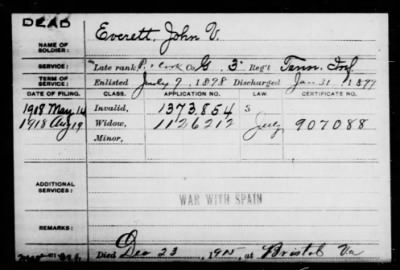 DEAD
NAME OF SOLDIER: Everett, John V.
SERVICE: Late rank, Cook Co. G, 3 Reg't Tenn. Inf
TERM OF SERVICE: Enlisted July 9, 1898 Discharged Jan 31, 1899
DATE OF FILING. CLASS. APPLICATION NO. LAW. CERTIFICATE NO.
1918 May 14 Invalid, 1373.854 S
1918 Aug 19 Widow, 1126212 July 907088
Minor,
ADDITIONAL SERVICES:
WAR WITH SPAIN
REMARKS:
Died Dec 23, 1915, at Bristol Va